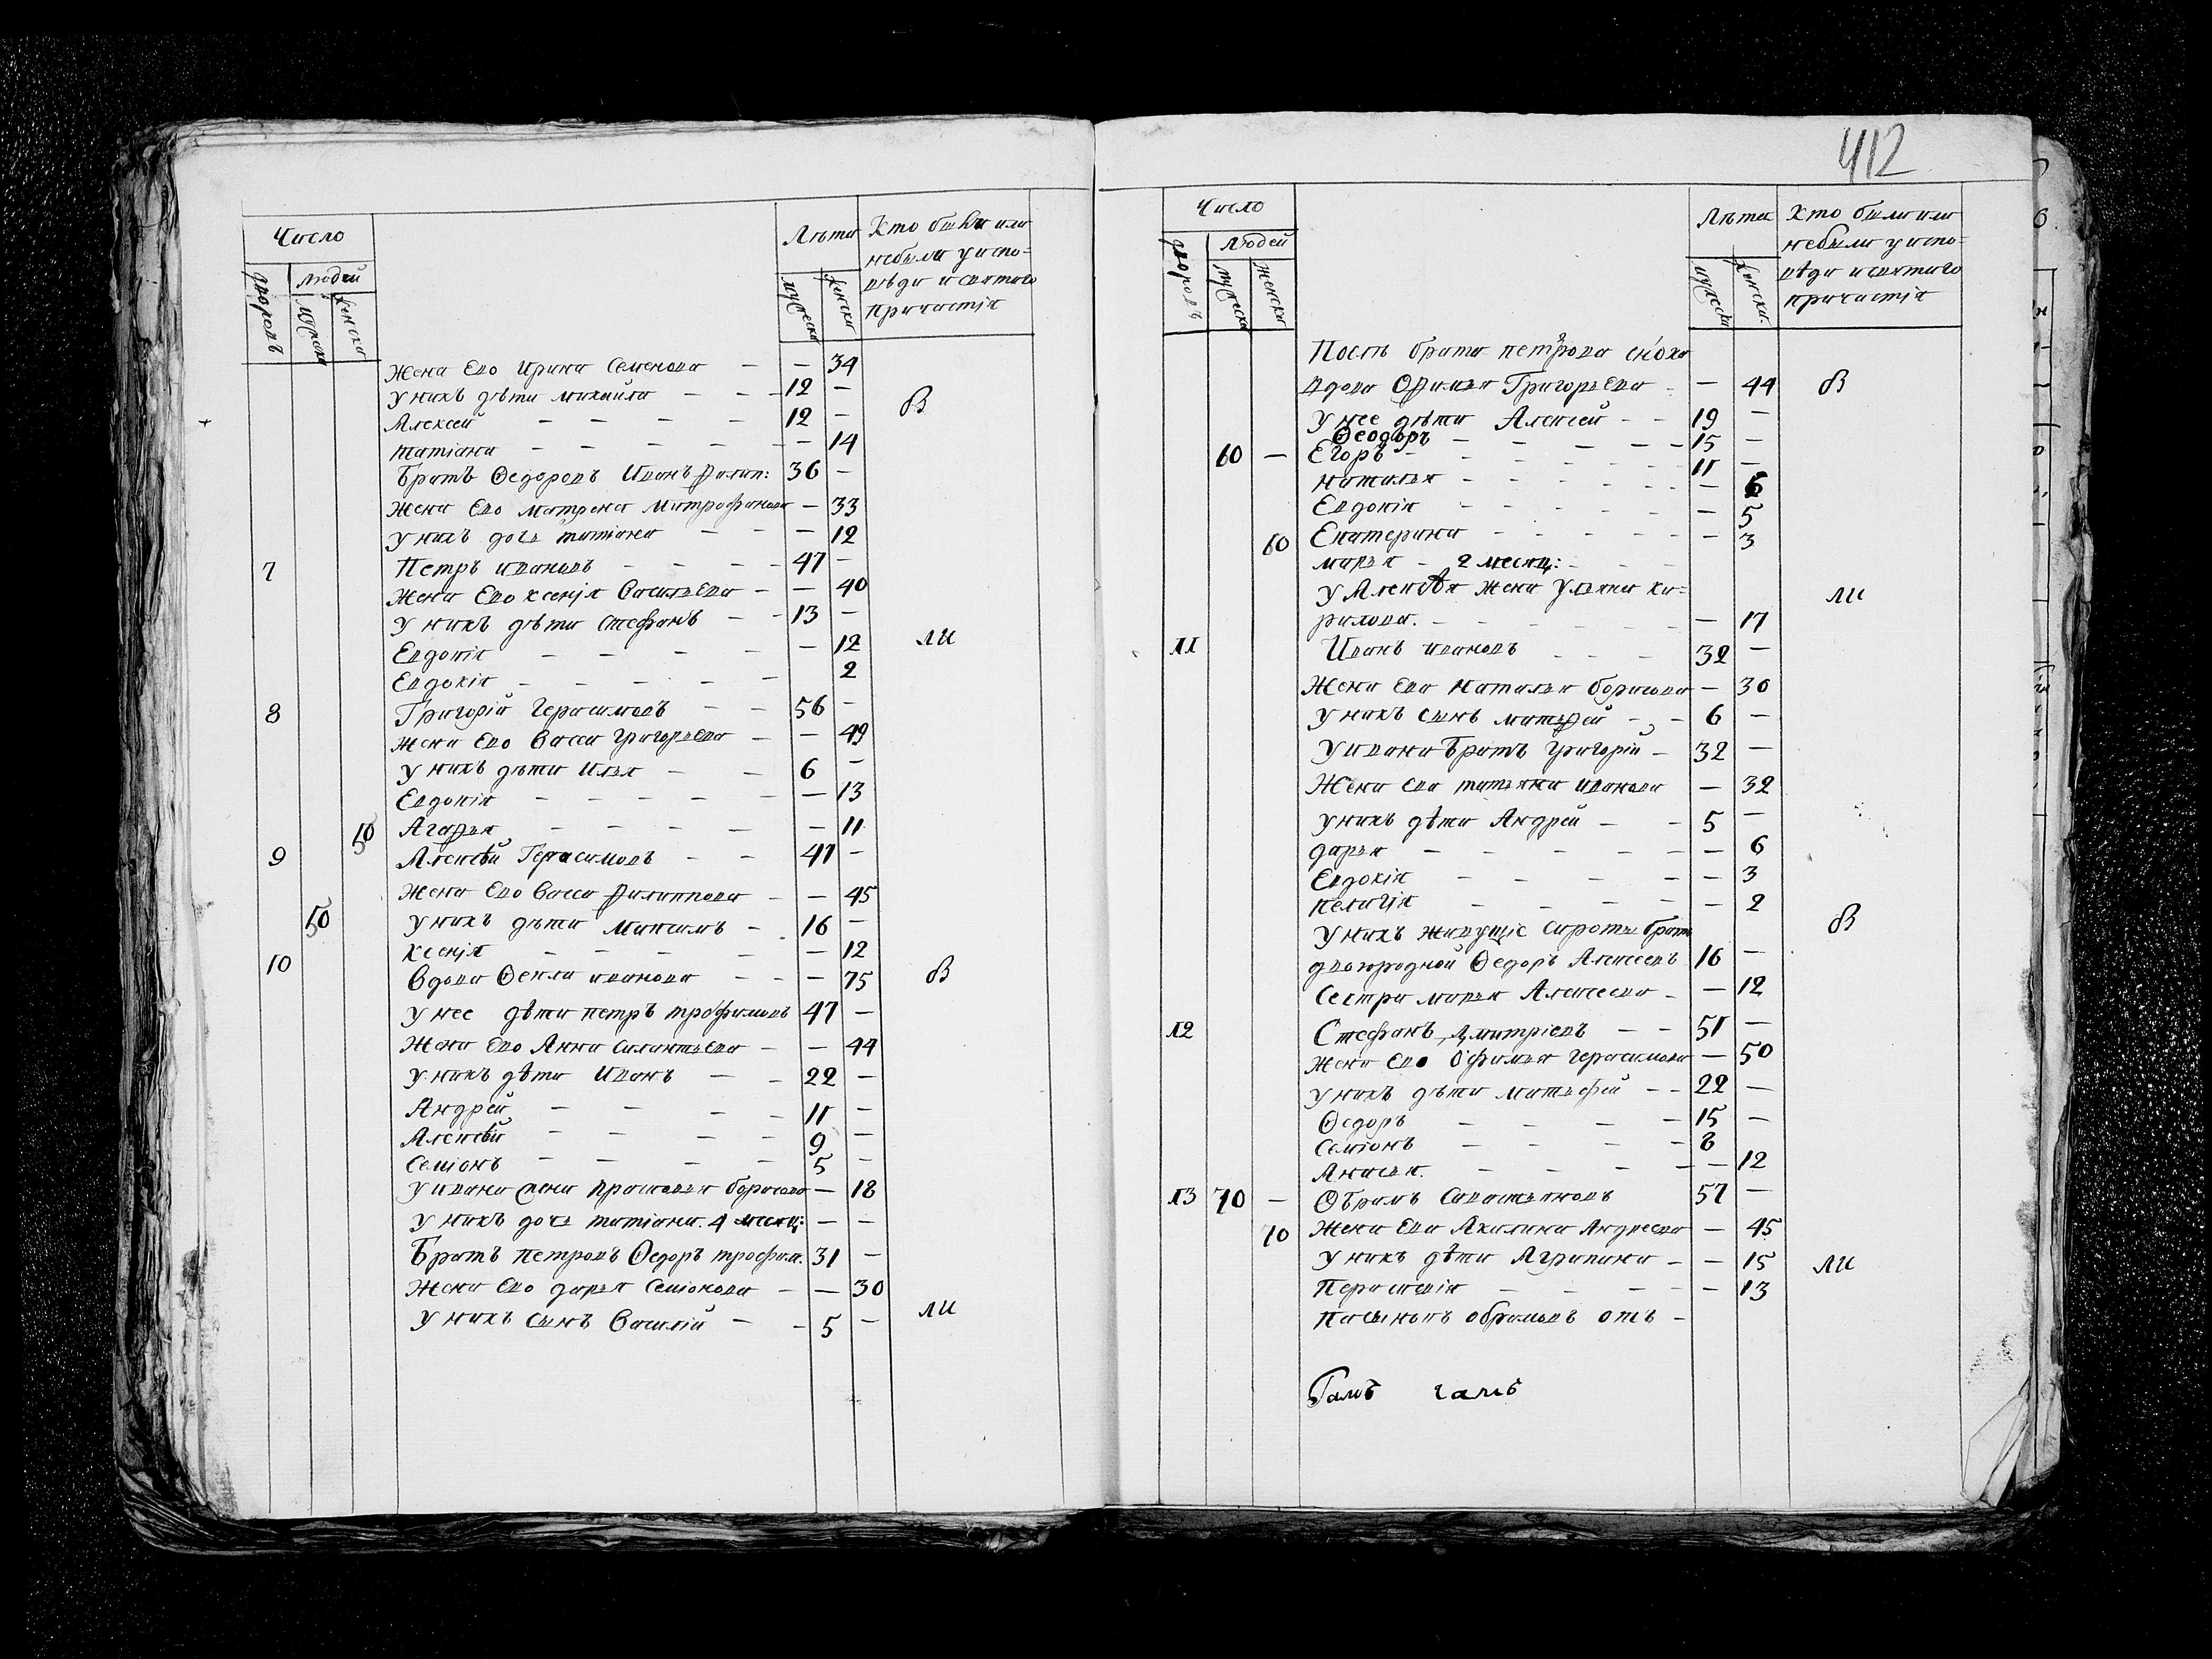 412
Число
дворовъ
людей
мужеска
женска
Лѣта
мужеска
женска
Кто были или
небыли у испо-
вѣди и святаго
причастія
Жена Ево Ирина Семенова — — 34
У нихъ дѣти михайла — — 12 —
Алексей — — — — 12 —
татіана — — — — — 14
Братъ Ѳедоровъ Иванъ Филип: 36 —
Жена Ево матрена митрофанова — 33
У нихъ дочь татіана — — — 12
7 Петръ ивановъ — — — 47 —
Жена Ево ксенія Васильева — — 40
У нихъ дѣти Стефанъ — — 13 —
Евдокія — — — — — 12
Евдокія — — — — — 2
8 Григорій Герасимовъ — — 56 —
Жена Ево Васса Григорьева — — 49
У нихъ дѣти Илья — — 6 —
Евдокія — — — — — 13
50 Агафья — — — — — 11
9 Алексѣй Герасимовъ — — 41 —
Жена Ево Васса Филиппова — — 45
50 У нихъ дѣти Максимъ — 16 —
Ксенія — — — — — 12
10 Вдова Ѳекла иванова — — — 75
У нее дѣти петръ трофимовъ 47 —
Жена Ево Анна силантьева — — 44
У нихъ дѣти Иванъ — — 22 —
Андрей — — — — 11 —
Алексѣй — — — — 9 —
Семіонъ — — — — 5 —
У ивана жена Прасковья борисова — 18
У нихъ дочь татіана. 4 месяц: — —
Братъ петровъ Ѳедоръ трофим. 31 —
Жена Ево дарья Семіонова — — 30
У нихъ сынъ Василій — — 5 —
В
ли
В
ли
Число
дворовъ
людей
мужеска
женска
Лѣта
мужеска
женска.
Кто были или
небыли у испо-
вѣди и святаго
причастія
Послѣ брата петрова сноха
вдова Офимья Григорьева — — 44
У нее дѣти Алексей — — 19 —
Ѳеодоръ — — — — 15 —
60 — Егоръ — — — — 11 —
наталья — — — — — 6
Евдокія — — — — — 5
60 Екатерина — — — — — 3
марья — 2 месяц: — —
У Алексѣя жена Ульяна ки-
рилова. — — — — — 17
11 Иванъ ивановъ — — — 32 —
Жена Ева Наталья борисова — 30
У нихъ сынъ матфей — — 6 —
У ивана Братъ Григорій — 32 —
Жена Ева татьяна иванова — 32
У нихъ дѣти Андрей — — 5 —
дарья — — — — — 6
Евдокія — — — — — 3
пелагія — — — — — 2
У нихъ живущіе сироты братъ
двоюродной Ѳедоръ Алексеевъ 16 —
Сестра марья Алексеева — — 12
12 Стефанъ дмитріевъ — — 51 —
Жена Ево Офимья герасимова — 50
У нихъ дѣти матьфей — — 22 —
Ѳедоръ — — — — 15 —
Семіонъ — — — — 8
Анисья. — — — — — 12
13 70 — Обрамъ Савостьяновъ 57 —
70 Жена Ева Акилина Андреева — 45
У нихъ дѣти Агрипина — — 15
Перасковія — — — — — 13
пасынокъ обрамовъ отъ —
В
ли
В
ли